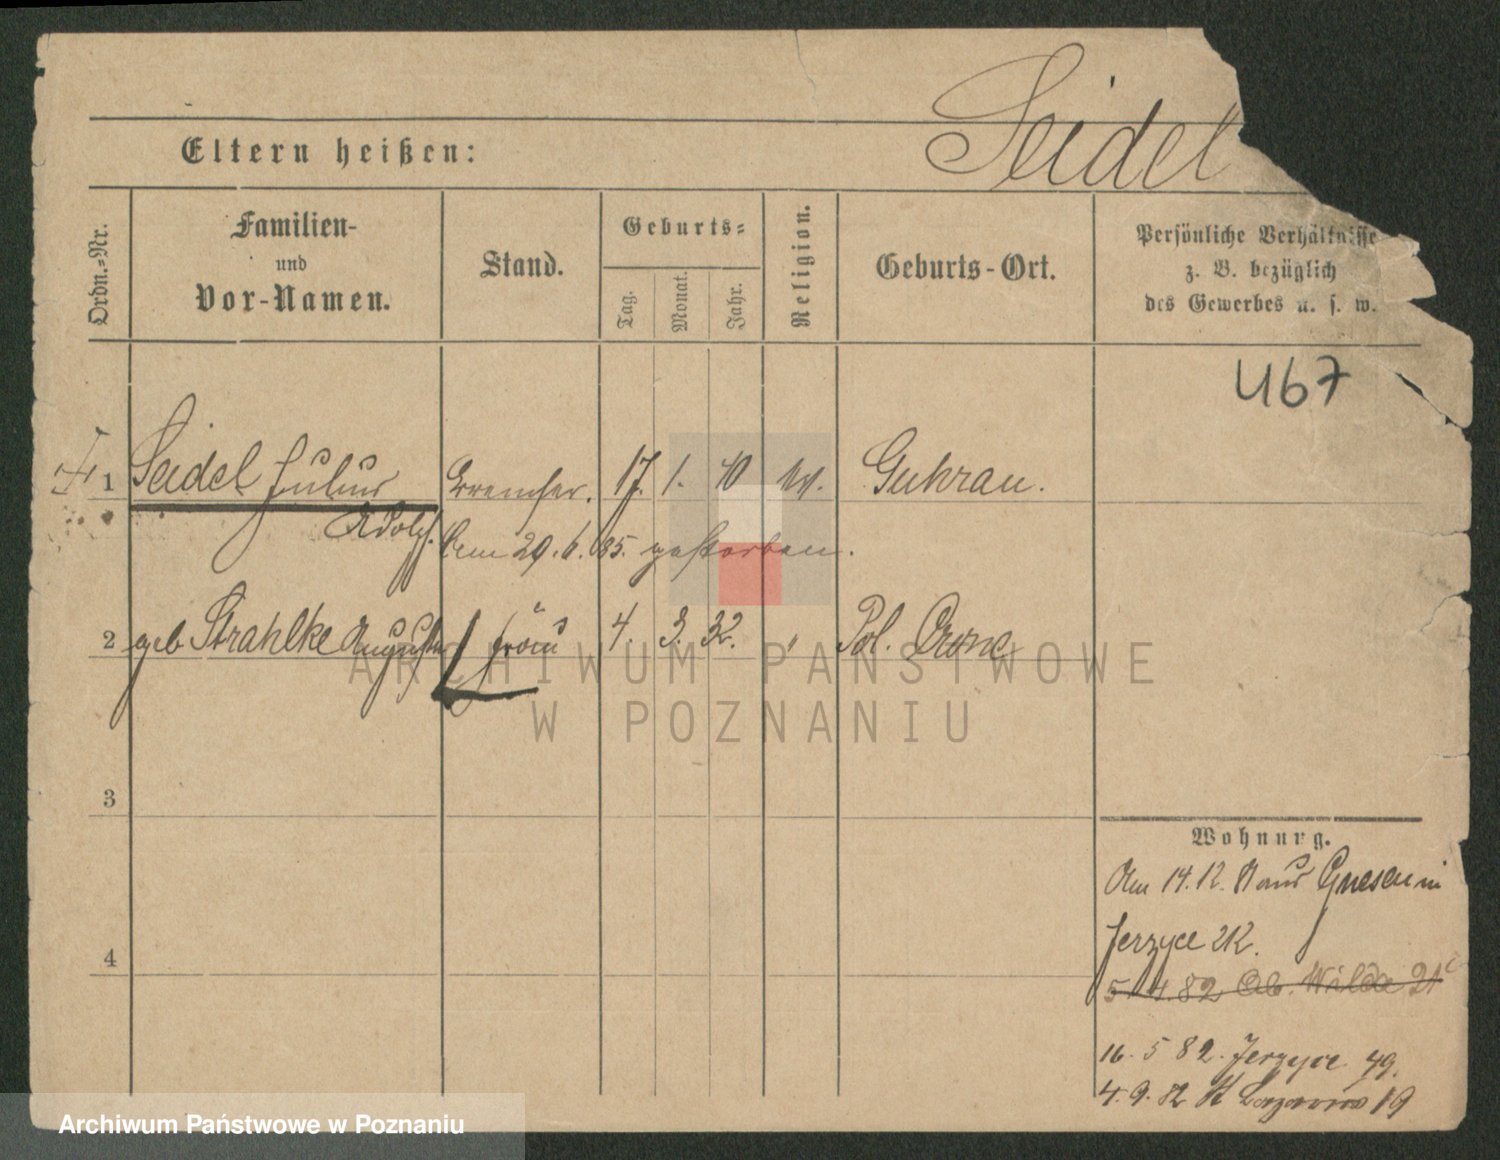 Seidel
Eltern heißen:
Ordn.-Nr.
Familien-
und
Vor-Namen.
Stand.
Geburts-
Tag.
Monat.
Jahr.
Religion.
Geburts-Ort.
Persönliche Verhältnisse
z. B. bezüglich
des Gewerbes u. s. w.
467
1 Seidel Julius 17. 1. Guhrau.
Adolf.
Am 29. 6. 85. gestorben.
2 geb Strahlke Auguste 4. 3. 32. " Pol. Crone
3
4
Wohnung.
Am 14. 12. aus Gnesen in
Jerzyce 212.
5. 4. 82 Ob. Wilda 21
16. 5 82. Jerzyce 49.
4. 9. 82 St Lazarus 19
ARCHIWUM PAŃSTWOWE
W POZNANIU
Archiwum Państwowe w Poznaniu